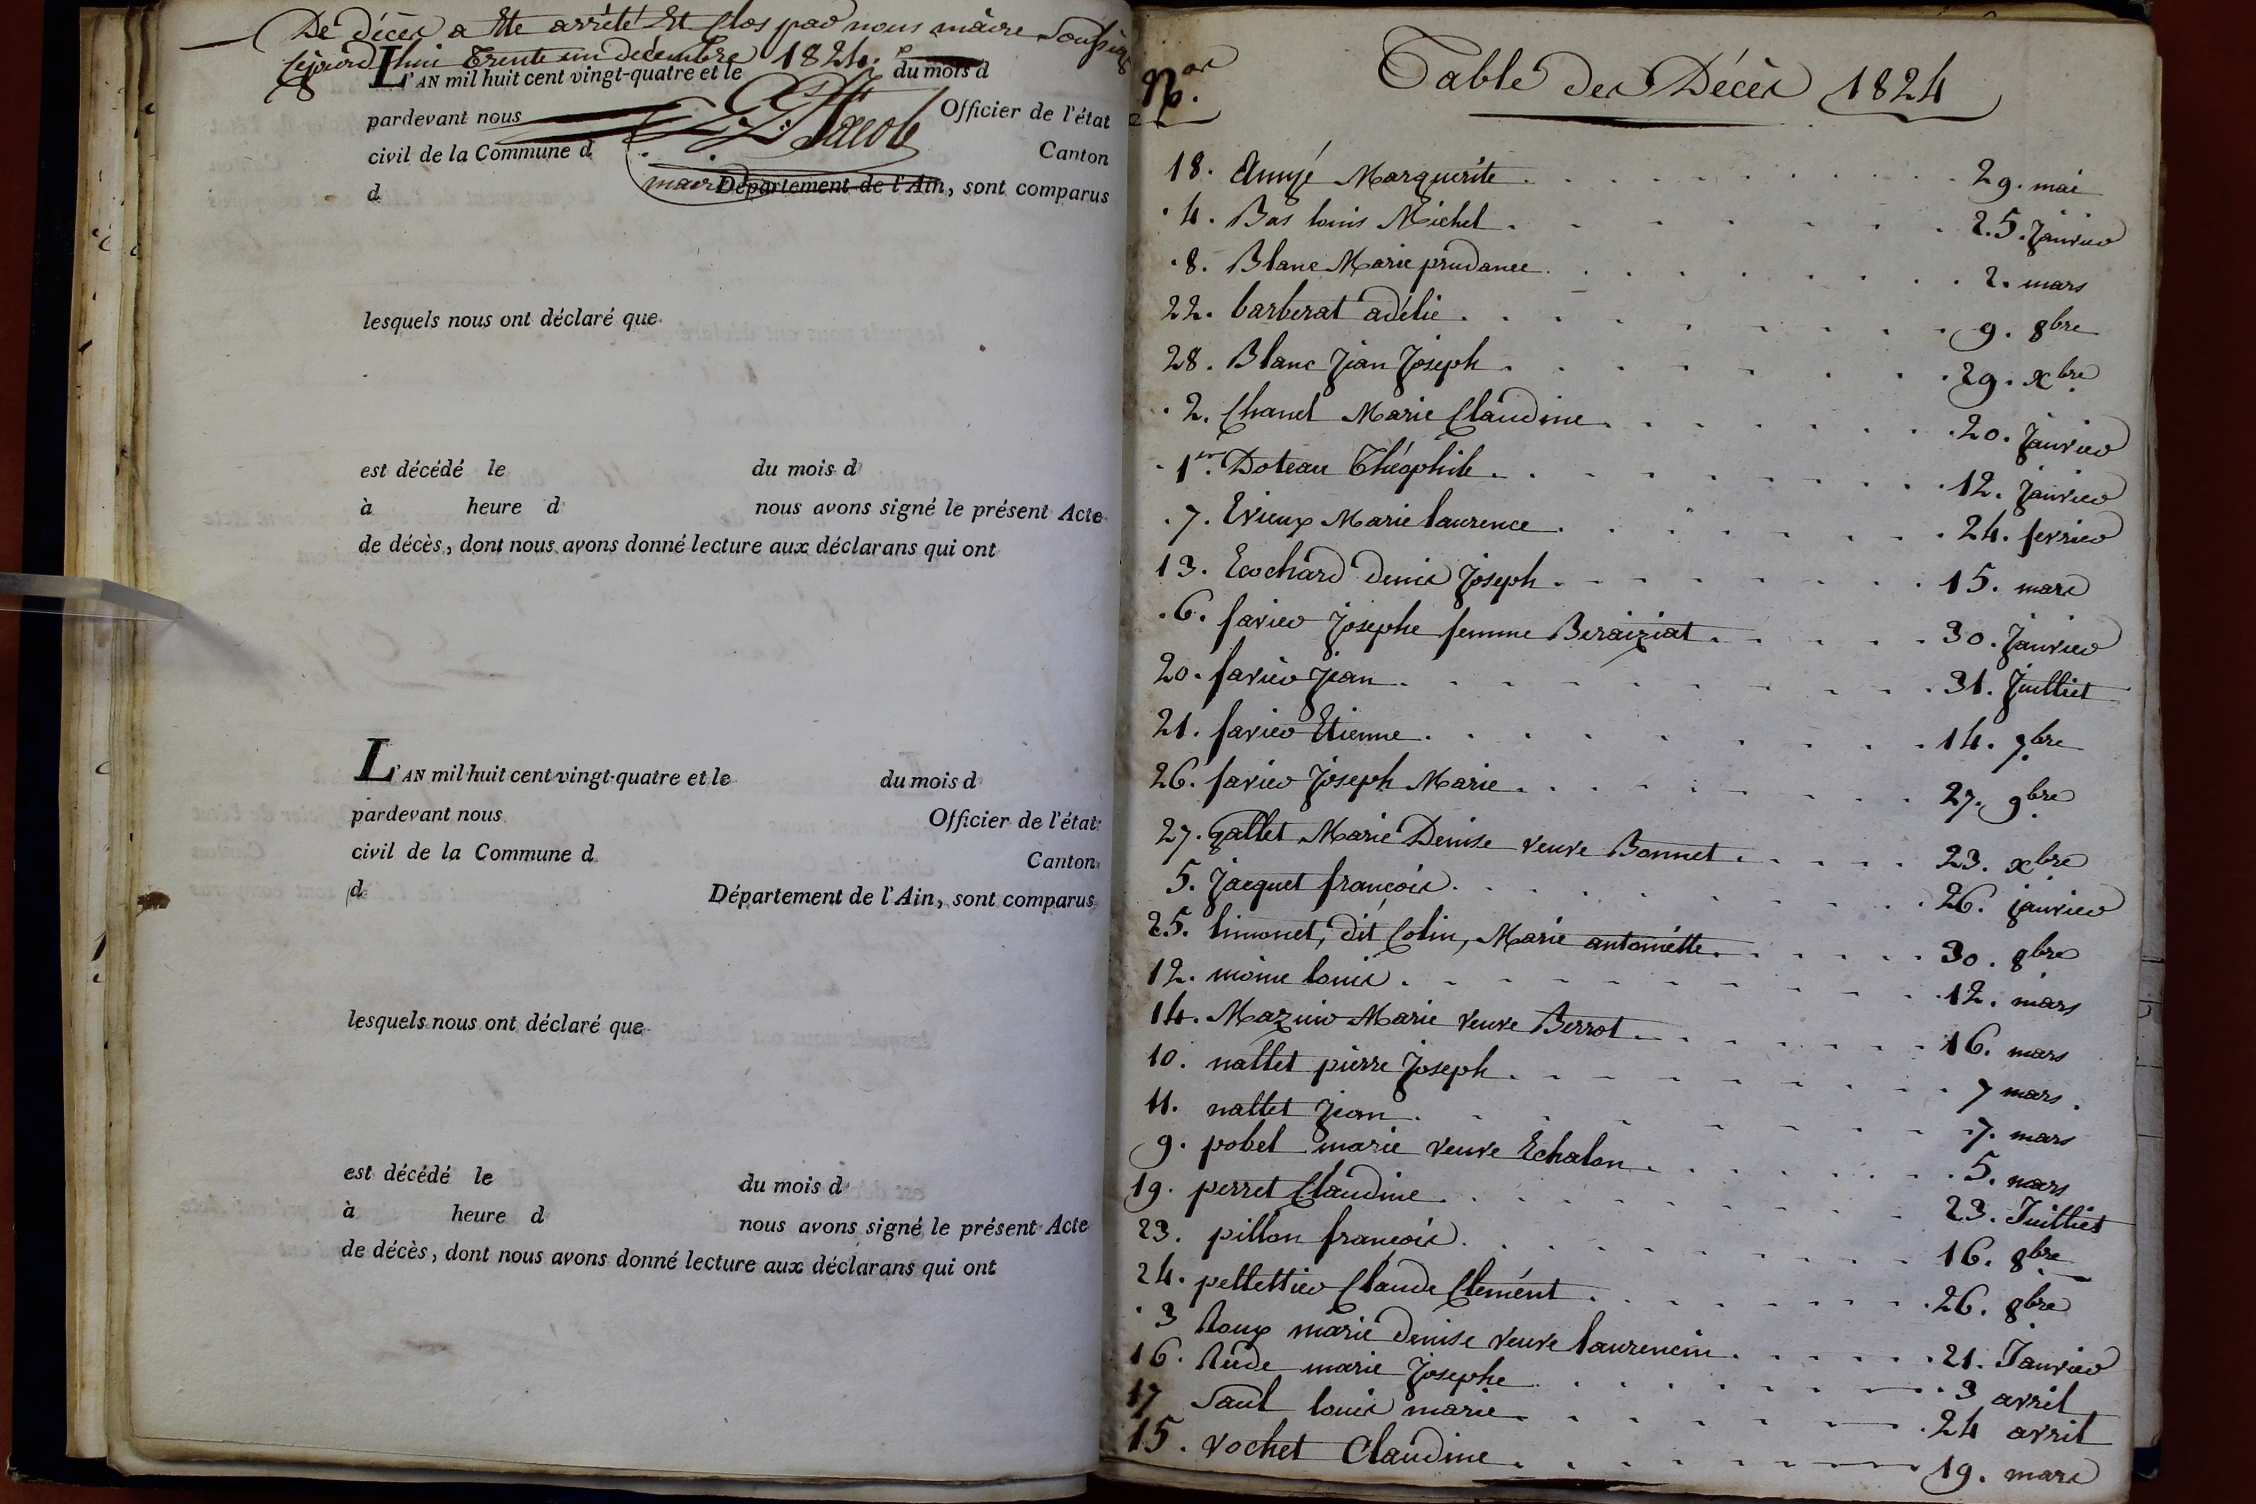 De décès a Ete arrêté Et Clos par nous maire Soussigné
cejourd'hui Trente un decembre 1824.
L'AN mil huit cent vingt-quatre et le du mois d
pardevant nous Officier de l'état
civil de la Commune d Canton
d maire Département de l'Ain, sont comparus
lesquels nous ont déclaré que
est décédé le du mois d
à heure d nous avons signé le présent Acte
de décès, dont nous avons donné lecture aux déclarans qui ont
L'AN mil huit cent vingt-quatre et le du mois d
pardevant nous Officier de l'état
civil de la Commune d Canton
d Département de l'Ain, sont comparus
lesquels nous ont déclaré que
est décédé le du mois d
à heure d nous avons signé le présent Acte
de décès, dont nous avons donné lecture aux déclarans qui ont
Nos. Table des Décès 1824
18. Marguerite 29. mai
4. Bas louis Michel 25. Janvier
8. Blanc Marie prudance 2. mars
22. barberat adélie 9. 8bre
28. Blanc Jean Joseph 29. Xbre
2. Chanel Marie Claudine 20. Janvier
1er. Doteau Théophile 12. Janvier
7. Evieux Marie laurence 24. fevrier
13. Ecochard denis Joseph 15. mars
6. favier Josephe femme Beraiziat 30. Janvier
20. favier Jean 31. Juilliet
21. favier Etienne 14. 7bre
26. favier Joseph Marie 27. 9bre
27. gallet Marie Denise veuve Bonnet 23. xbre
5. Jacquet françois 26. janvier
25. limonet, dit Colin, Marie antoinette 30. 8bre
12. moine louis 12. mars
14. Mazuir Marie veuve Berrot 16. mars
10. nallet pierre Joseph 7 mars
11. nallet Jean 7. mars
9. pobel marie veuve Echalon 5. mars
19. perret Claudine 23. Juilliet
23. pillon françois 16. 8bre
24. pellettier Claude Clement 26. 8bre
3 Roux marie denise veuve laurencin 21. Janvier
16. Rude marie Josephe 3 avril
17 Saul louis marie 24 avril
15. vochet Claudine 19. mars